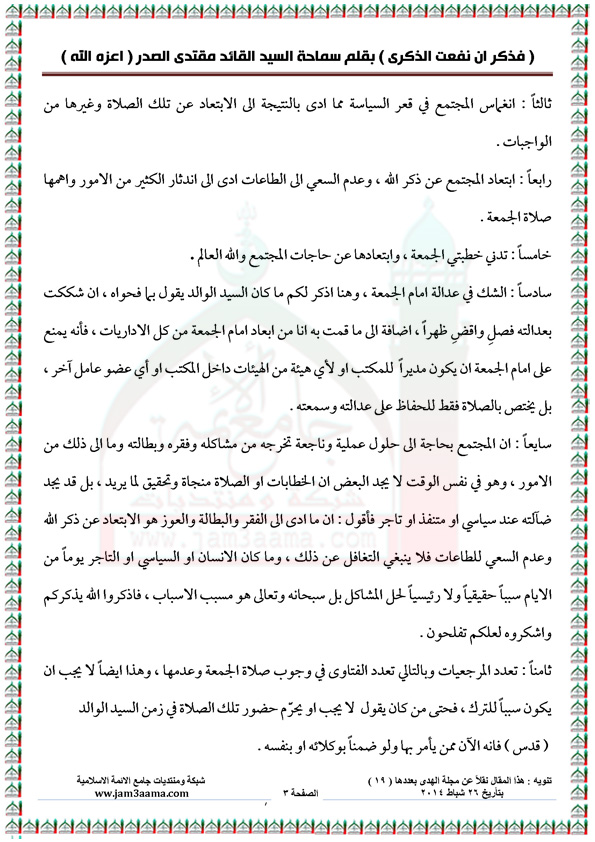 ( فذكر ان نفعت الذكرى ) بقلم سماحة السيد القائد مقتدى الصدر ( اعزه الله )
ثالثاً : انغماس المجتمع في قعر السياسة مما ادى بالنتيجة الى الابتعاد عن تلك الصلاة وغيرها من
الواجبات .
رابعاً : ابتعاد المجتمع عن ذكر الله ، وعدم السعي الى الطاعات ادى الى اندثار الكثير من الامور واهمها
صلاة الجمعة .
خامساً : تدني خطبتي الجمعة ، وابتعادها عن حاجات المجتمع والله العالم .
سادساً : الشك في عدالة امام الجمعة ، وهنا اذكر لكم ما كان السيد الوالد يقول بما فحواه ، ان شككت
بعدالته فصلِ واقضِ ظهراً ، اضافة الى ما قمت به انا من ابعاد امام الجمعة من كل الاداريات ، فأنه يمنع
على امام الجمعة ان يكون مديراً للمكتب او لأي هيئة من الهيئات داخل المكتب او أي عضو عامل آخر ،
بل يختص بالصلاة فقط للحفاظ على عدالته وسمعته .
سايعاً : ان المجتمع بحاجة الى حلول عملية وناجعة تخرجه من مشاكله وفقره وبطالته وما الى ذلك من
الامور ، وهو في نفس الوقت لا يجد البعض ان الخطابات او الصلاة منجاة وتحقيق لما يريد ، بل قد يجد
ضآلته عند سياسي او متنفذ او تاجر فأقول : ان ما ادى الى الفقر والبطالة والعوز هو الابتعاد عن ذكر الله
وعدم السعي للطاعات فلا ينبغي التغافل عن ذلك ، وما كان الانسان او السياسي او التاجر يوماً من
الايام سبباً حقيقياً ولا رئيسياً لحل المشاكل بل سبحانه وتعالى هو مسبب الاسباب ، فاذكروا الله يذكركم
واشكروه لعلكم تفلحون .
ثامناً : تعدد المرجعيات وبالتالي تعدد الفتاوى في وجوب صلاة الجمعة وعدمها ، وهذا ايضاً لا يجب ان
يكون سبباً للترك ، فحتى من كان يقول لا يجب او يحرّم حضور تلك الصلاة في زمن السيد الوالد
( قدس ) فانه الآن ممن يأمر بها ولو ضمناً بوكلائه او بنفسه .
جامع الائمة
شبكة ومنتديات
www.jam3aama.com
تنويه : هذا المقال نقلاً عن مجلة الهدى بعددها ( ١٩ )
بتاريخ ٢٦ شباط ٢٠١٤
الصفحة ٣
شبكة ومنتديات جامع الائمة الاسلامية
www.jam3aama.com